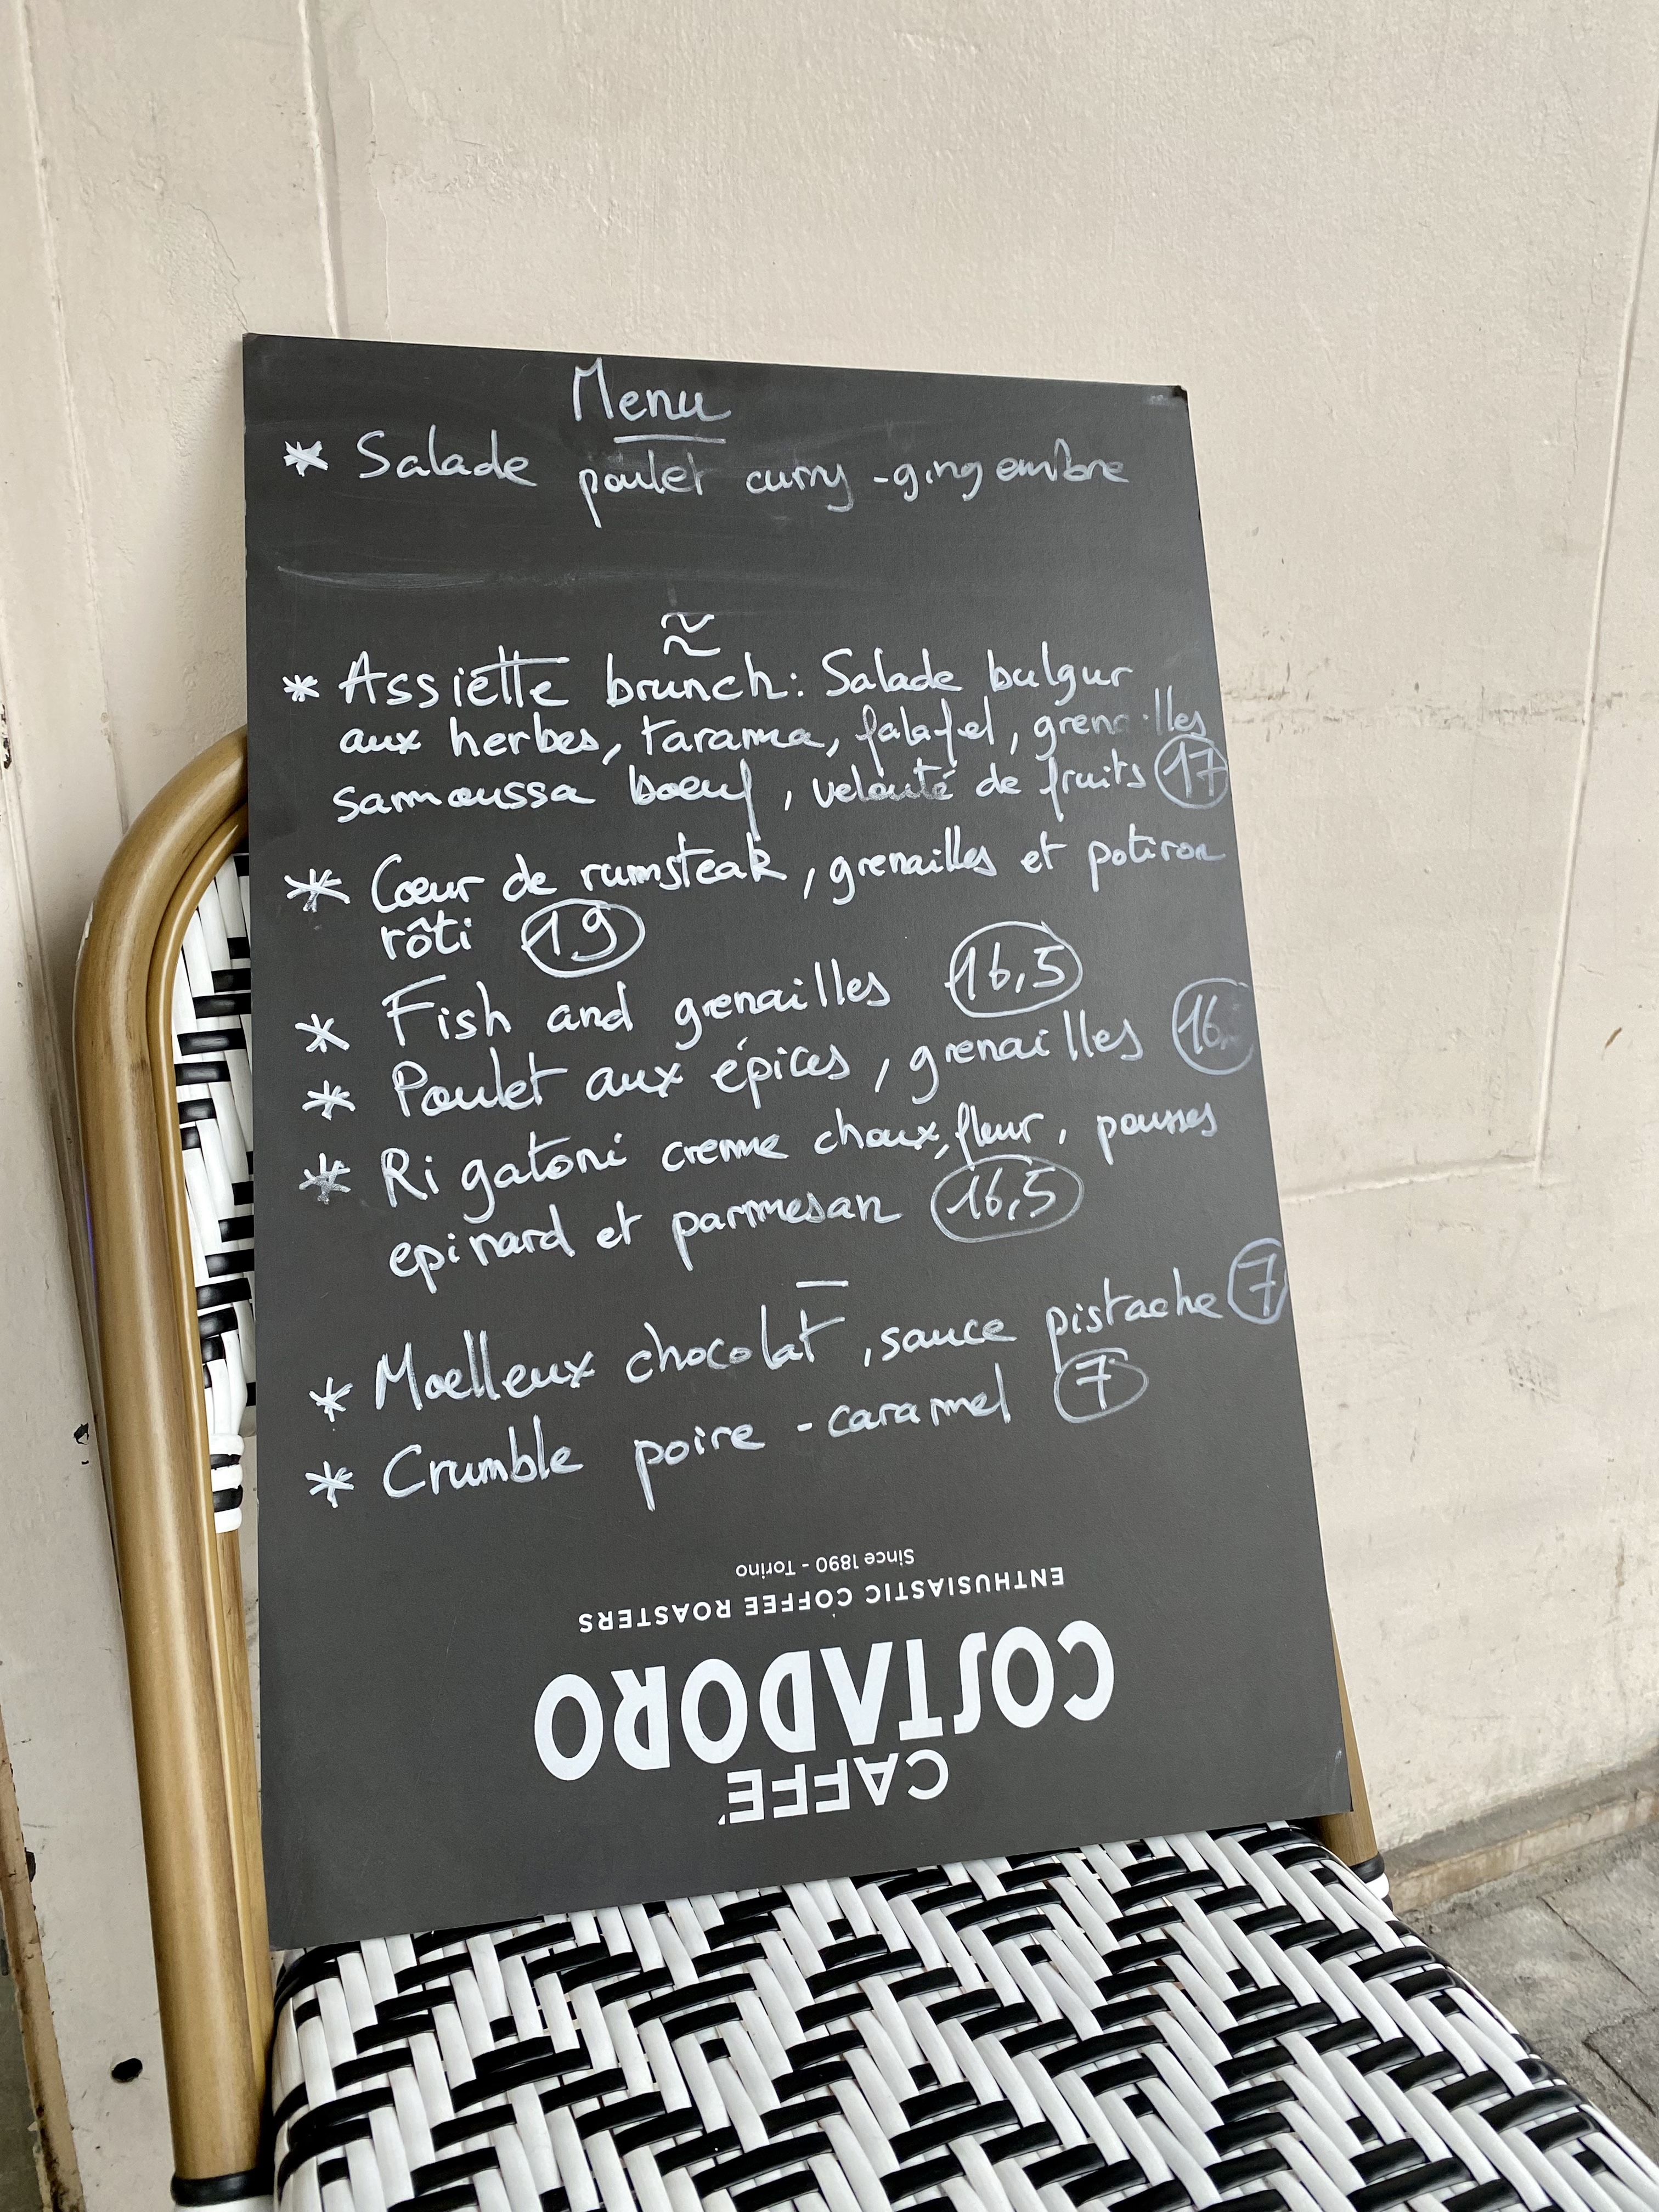 Menu
* Salade poulet curry - gingembre
~
~
* Assiette brunch: Salade bulgur
aux herbes, tarama, falafel, grenailles
samoussa boeuf, velouté de fruits 17
* Cœur de rumsteak, grenailles et potiron
rôti 19
* Fish and grenailles 16,5
* Poulet aux épices, grenailles
* Rigatoni creme choux, fleur, pousses
epinard et parmesan 16,5
—
* Moelleux chocolat, sauce pistache 7
* Crumble poire - caramel 7
CAFFÈ
COSTADORO
ENTHUSIASTIC COFFEE ROASTERS
Since 1890 - Torino